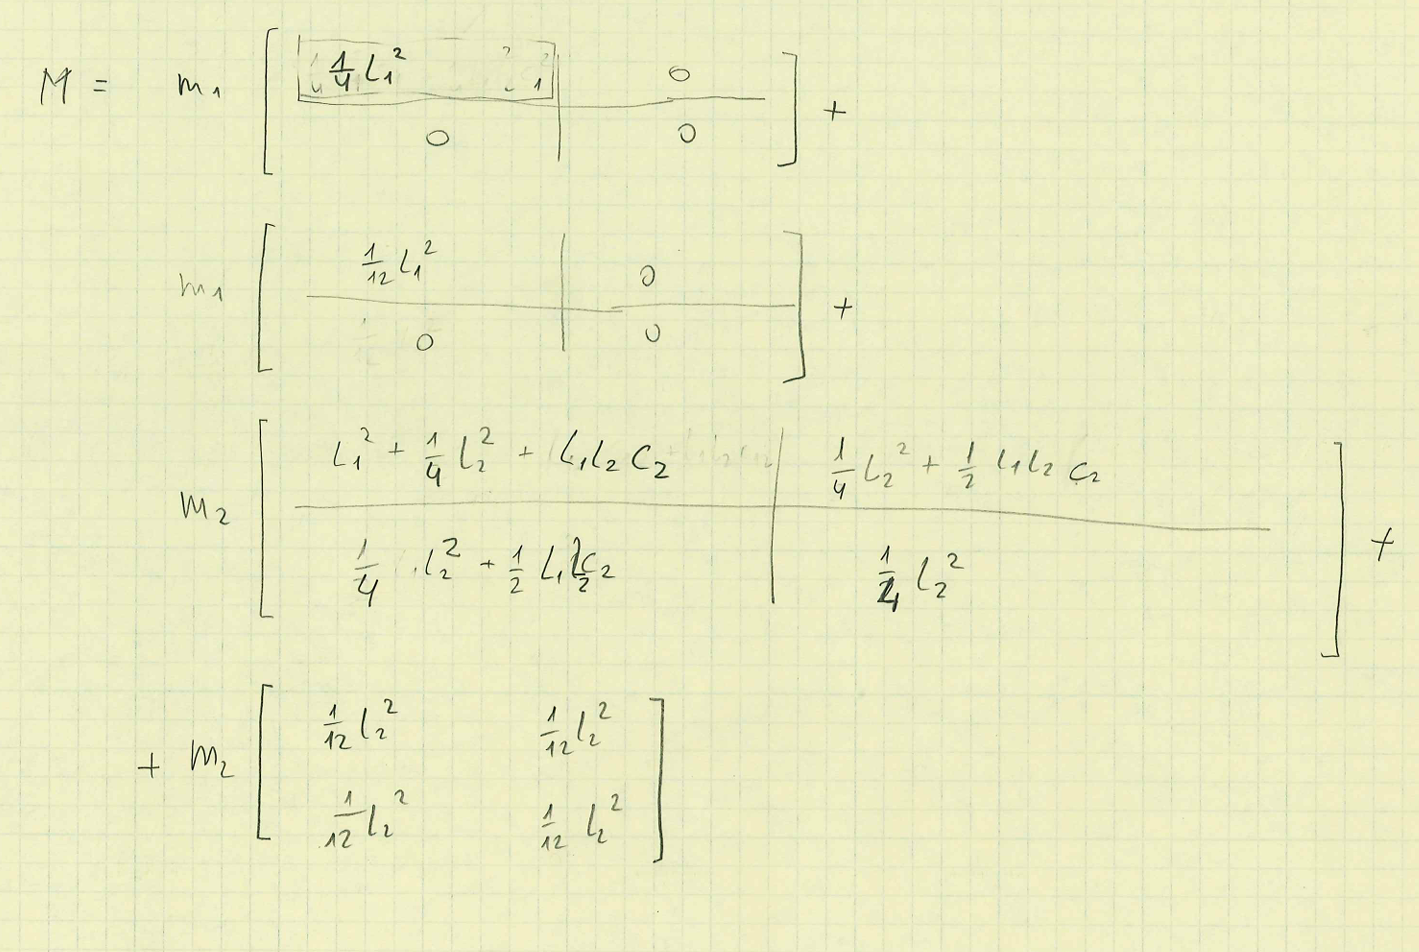 M = m₁ [ ¼ L₁² | 0 ] +
[ 0 | 0 ]
m₁ [ 1/12 L₁² | 0 ] +
[ 0 | 0 ]
m₂ [ L₁² + ¼ L₂² + L₁L₂ C₂ | ¼ L₂² + ½ L₁L₂ C₂ ] +
[ ¼ L₂² + ½ L₁L₂C₂ | ¼ L₂² ]
+ m₂ [ 1/12 L₂² 1/12 L₂² ]
[ 1/12 L₂² 1/12 L₂² ]